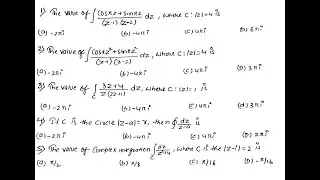 1) The value of ∫ (cosπz + sinπz)/((z-1)(z-2)) dz, where C: |z|=4 is
(a) -2πi (b) -4πi (c) 4πi (d) 6πi
2) The value of ∫ (cosπz² + sinπz²)/((z-1)(z-2)) dz, where C: |z|=4 is
(a) -2πi (b) -4πi (c) 4πi (d) 3πi
3) The value of ∫_C (3z+4)/(z(2z+1)) dz, where C: |z|=1 is
(a) -2πi (b) -4πi (c) 4πi (d) 3πi
4) If C is the Circle |z-a|=r, then ∮ dz/(z-a) is
(a) -2πi (b) -4πi (c) 4πi (d) 2πi
5) The value of Complex integration ∫_C dz/(z²+4), where C is the |z-i|=2 is
(a) π/2 (b) π/3 (c) π/16 (d) -π/16